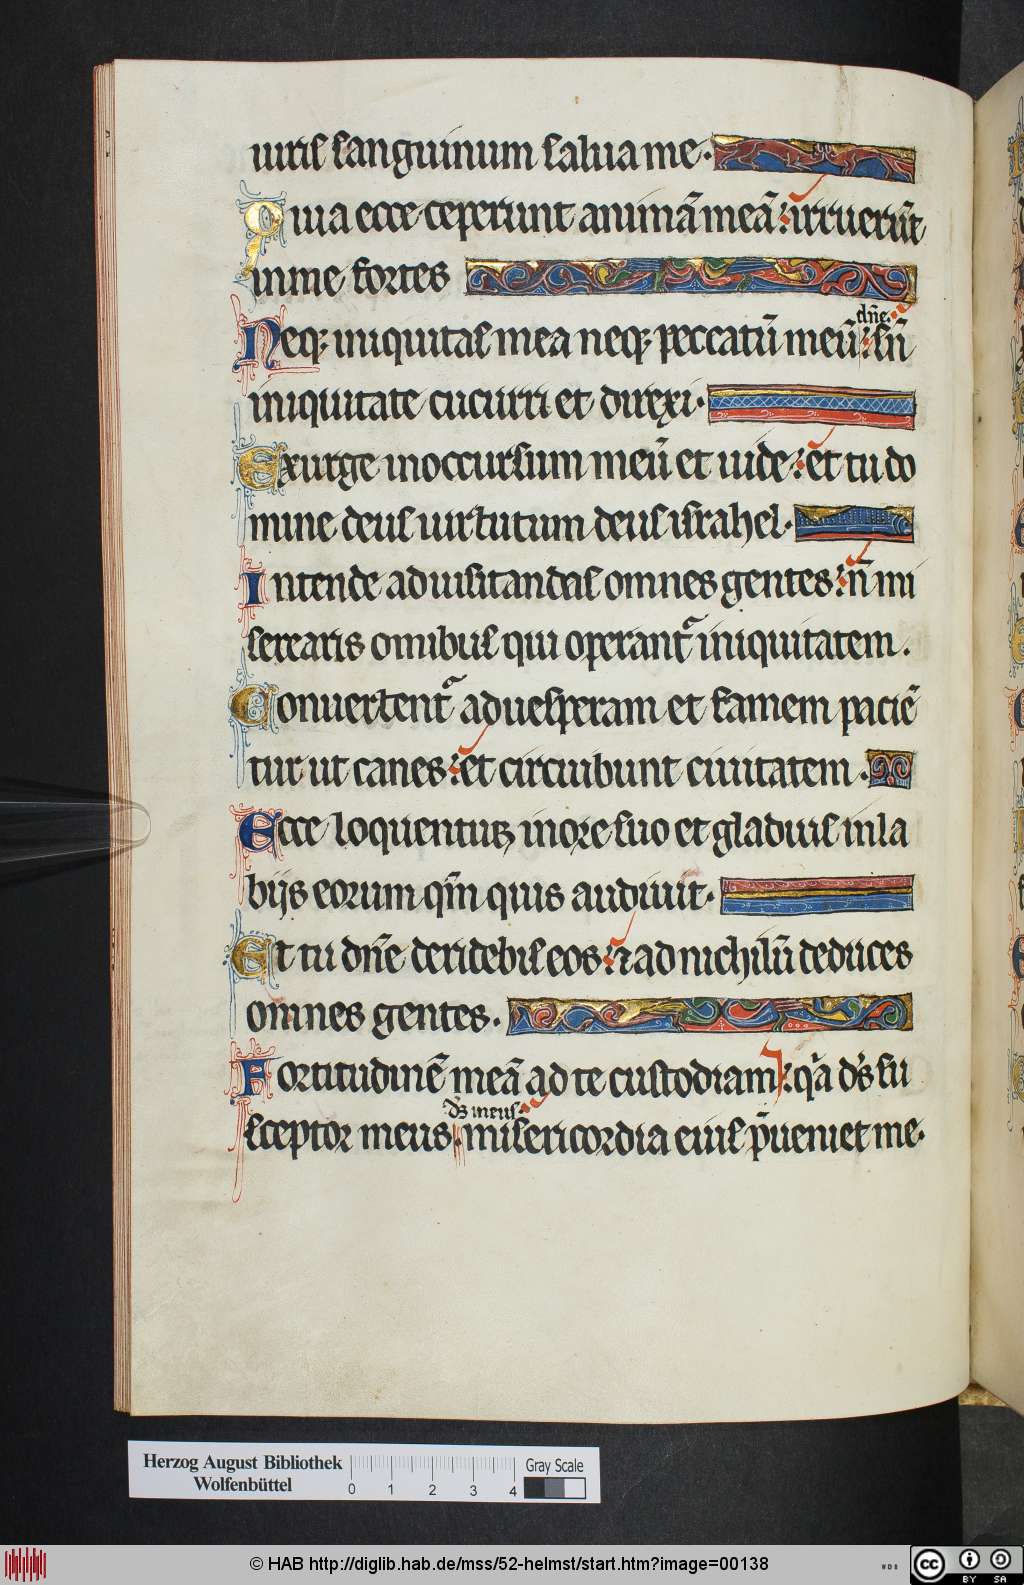 uiris sanguinum salua me.
Quia ecce ceperunt animā meā: irruerūt
in me fortes
Neq; iniquitas mea neq; peccatū meū dn̄e: sn̄
iniquitate cucurri et direxi.
Exurge in occursum meū et uide: et tu do
mine deus uirtutum deus israhel.
Intende ad uisitandas omnes gentes: n̄ mi
serearis omibus qui operant᷑ iniquitatem.
Conuertent᷑ ad uesperam et famem paciē
tur ut canes: et circuibunt ciuitatem.
Ecce loquentur in ore suo et gladius in la
bijs eorum qm̄ quis audiuit.
Et tu dn̄e deridebis eos: ⁊ ad nichilū deduces
omnes gentes.
Fortitudinē meā ad te custodiam: qͣa ds̄ su
sceptor meus: ds̄ meus. misericordia eius p̄ueniet me.
Herzog August Bibliothek
Wolfenbüttel
0 1 2 3 4
Gray Scale
© HAB http://diglib.hab.de/mss/52-helmst/start.htm?image=00138
WDB
cc BY SA